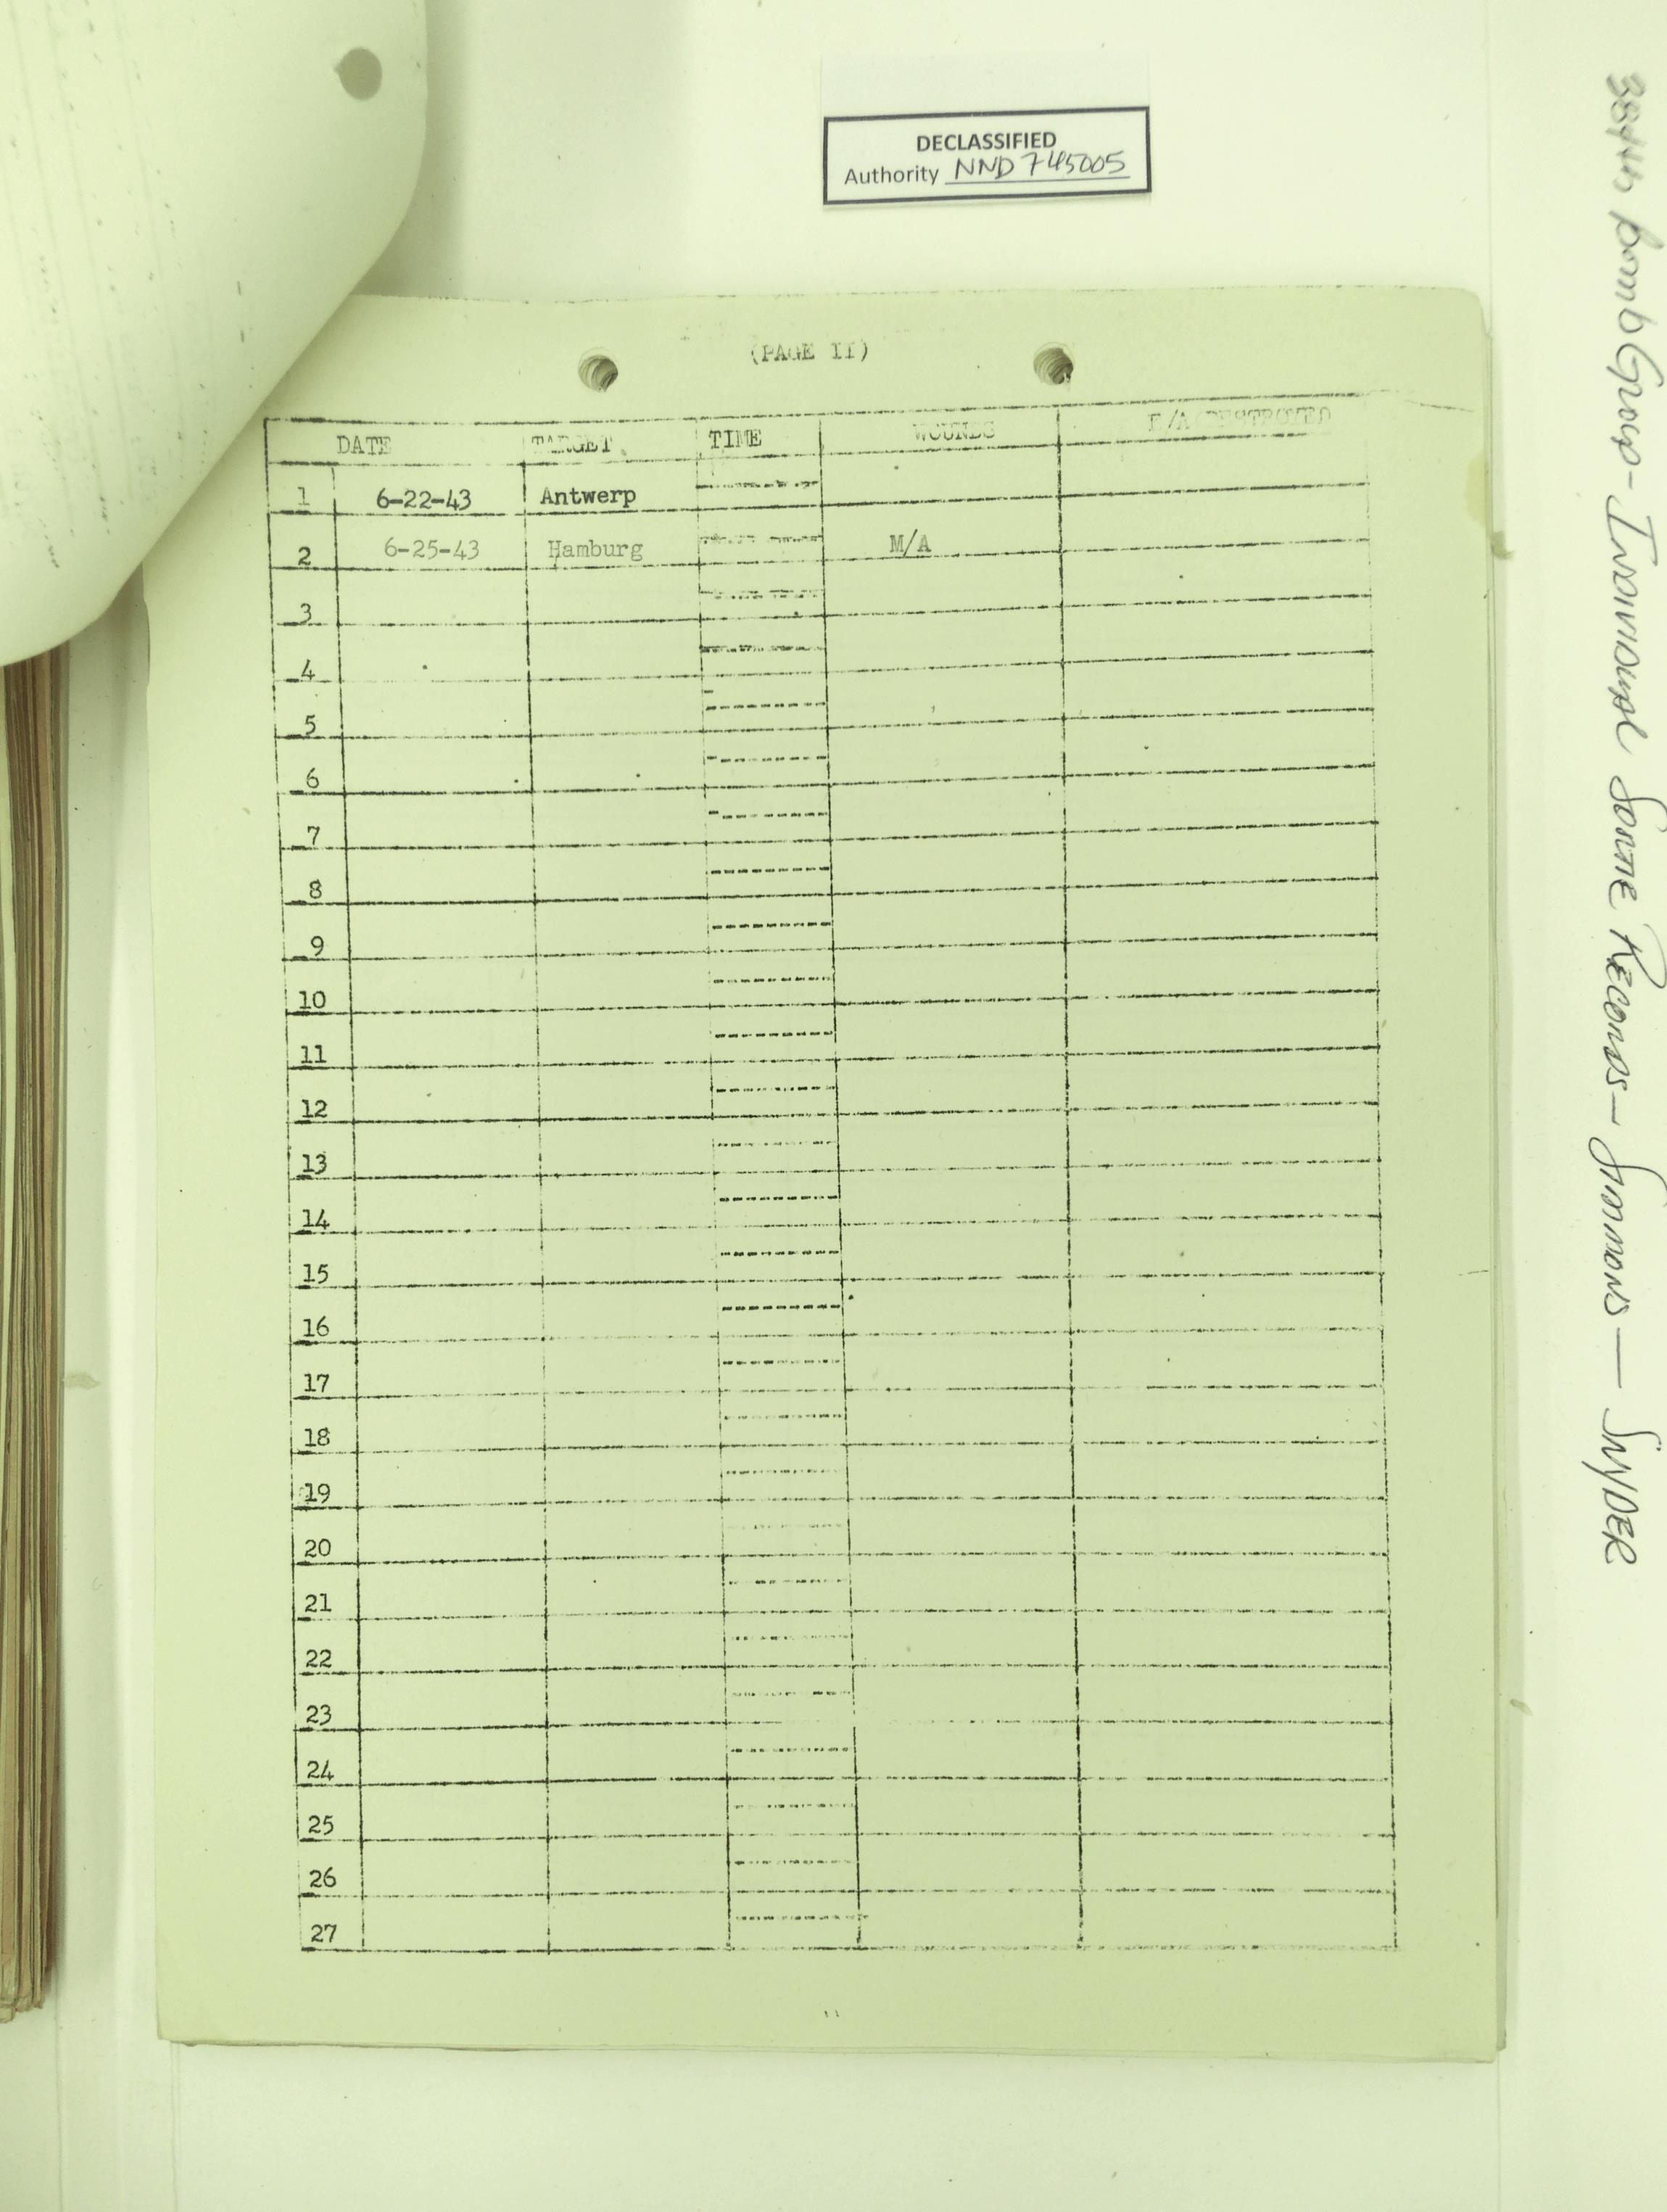 DECLASSIFIED
Authority NND 745005
(PAGE II)
DATE TARGET TIME WOUNDS E/A DESTROYED
1 6-22-43 Antwerp
2 6-25-43 Hamburg M/A
3
4
5
6
7
8
9
10
11
12
13
14
15
16
17
18
19
20
21
22
23
24
25
26
27
384th Bomb Group - Individual Sortie Records - Simmons — Snyder